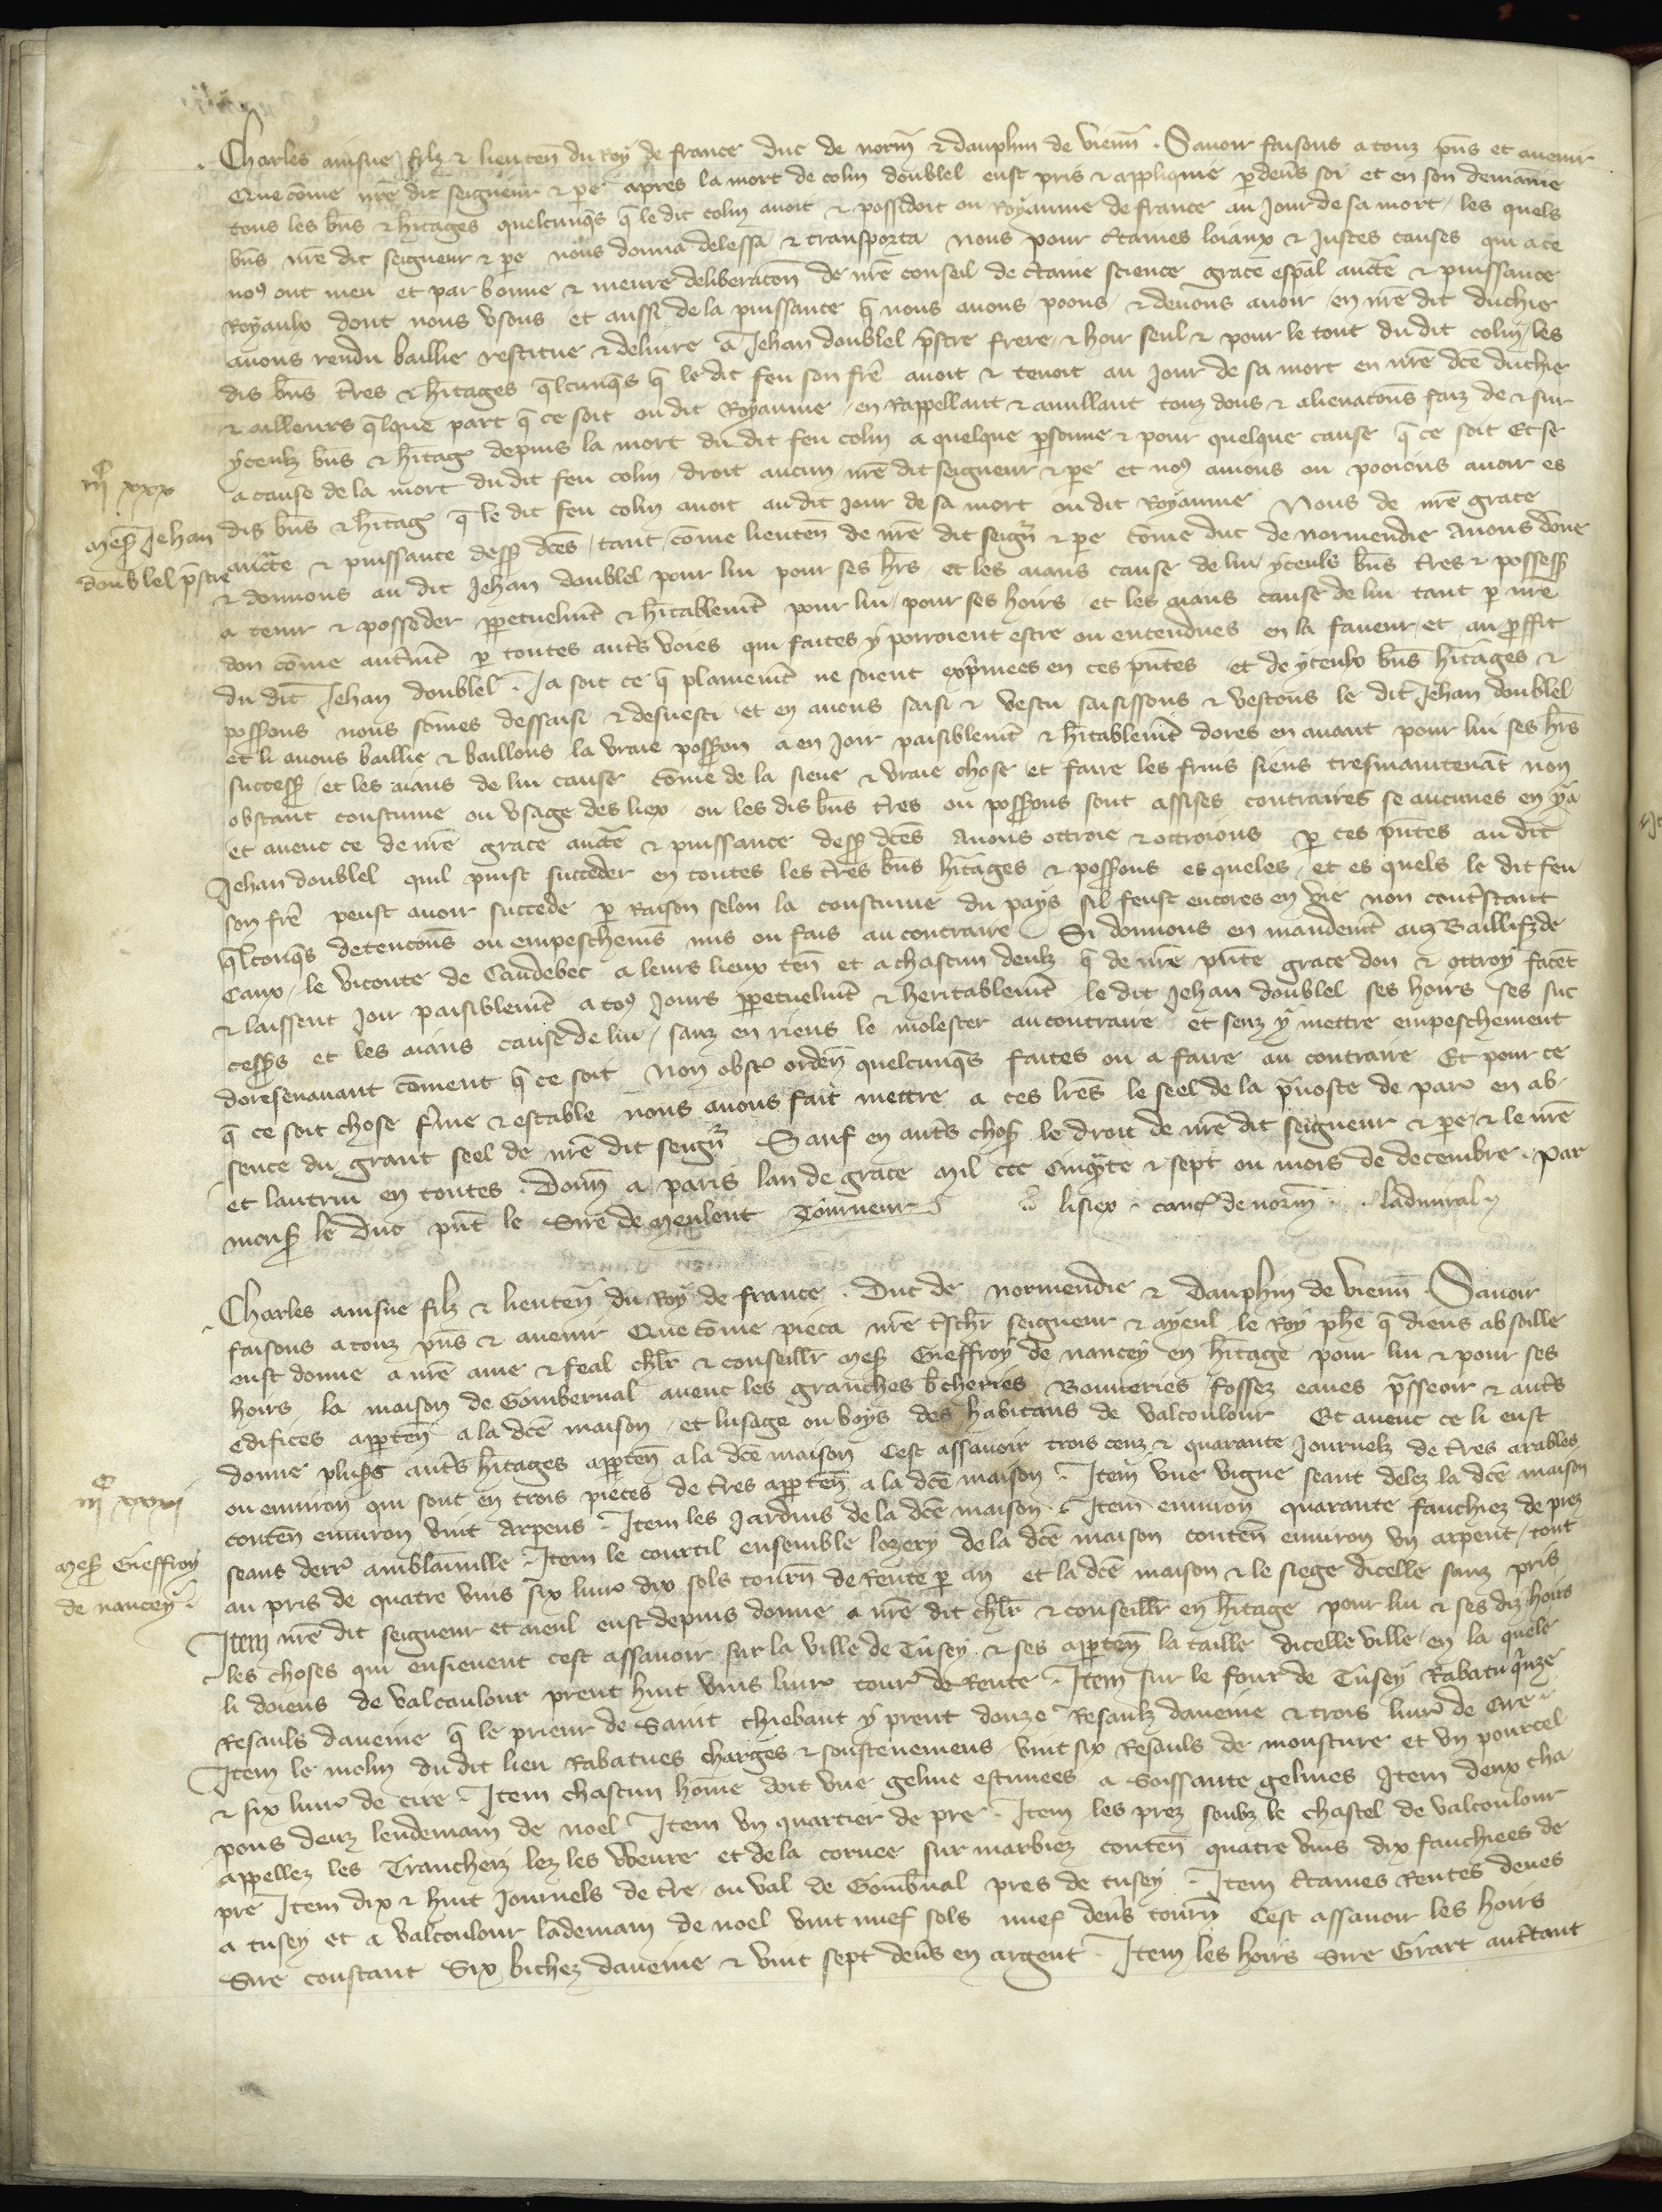 Charles ainsne filz & lieuten̄ du Roy de france duc de norm̄ & dauphin de vienn̄ . Sauoir faisons a touz p̄ns et auenir
Que cōme nr̄e dit seigneur & pere apres la mort de colin doublel eust pris & applique p deu̾s soi et en son demaine
tous les b̄ns & h̾itages quelcunq̄s q̄ le dit colin auoit & possidoit ou Royaume de france au Jour de sa mort / les quels
b̄ns nr̄e dit seigneur & pe̾ nous donna delessa & transporta nous pour c̾taines loiaux & Justes causes qui a ce
noꝯ ont meu et par bonne & meure deliberacōn de nr̄e conseil de c̾taine science grace esp̄al auct̄e & puissance
Royaulx dont nous vsons et aussi de la puissance q̄ nous auons poons & deuons auoir en nr̄e dit duchie
auons rendu baillie restitue & deliure a Jehan doublel p̄stre frere & hoir seul & pour le tout du dit colin / les
dis b̄ns t̾res & h̾itages q̄lcunq̄s q̄ le dit feu son fr̄e auoit & tenoit au Jour de sa mort en nr̄e dc̄e duchie
& ailleurs q̄lque part q̄ ce soit ou dit Royaume / en Rappellant & anullant touz dons & alienacōns faiz de & sur
yceulz b̄ns & h̾itag̾ depuis la mort du dit feu colin a quelque p̾sonne & pour quelque cause q̄ ce soit Et se
a cause de la mort du dit feu colin / droit aucun nr̄e dit seigneur & pe̾ et noꝯ auions ou pooions auoir es
dis b̄ns & h̾itag̾ q̄ le dit feu colin auoit au dit Jour de sa mort ou dit Royaume Nous de nr̄e grace
auct̄e & puissance dess̾ dc̄es / tant / cōme lieuten̄ de nr̄e dit seign̾ & pe̾ cōme duc de normendie Auons dōne
& donnons au dit Jehan doublel pour lui pour ses h̾rs et les aians cause de lui yceuls b̄ns t̾res & possess̾
a tenir & posseder ppetuelmēt & h̾itablemēt pour lui / pour ses hoirs et les aians cause de lui tant p nr̄e
don cōme aut̾mēt p toutes aut̾s voies qui faites y porroient estre ou entendues en la faueur et au p̄ffit
du dit Jehan doublel . Ja soit ce q̄ plainemēt ne soient exp̾mees en ces p̄ntes et de yceulx b̄ns h̾itages &
poss̾ons nous sōmes dessaisi & desuesti et en auons saisi & vestu saisissons & vestons le dit Jehan doublel
et li auons baillie & baillons la vraie poss̾on a en Joir paisiblemēt & h̾itablemēt dores en auant pour lui ses h̾rs
success̾ / et les aians de lui cause cōme de la siene & vraie chose et faire les fruis siens tresmaintenāt non
obstant coustume ou vsage des liex ou les dis b̄ns t̾res ou poss̾ons sont assises contraires se aucunes en y a
et auec ce de nr̄e grace auct̄e & puissance dess̾ dc̄es Auons ottroie & ottroions p ces p̄ntes au dit
Jehan doublel quil puist succeder en toutes les t̾res b̄ns h̾itages & poss̾ons es queles et es quels le dit feu
son fr̄e peust auoir succede p Raison selon la coustume du pays sil feust encores en vie non cont̾stant
q̄lconq̄s detencōns ou empeschemēs mis ou fais au contraire Si donnons en mandemēt aus Baillif de
Caux / le viconte de Caudebec a leurs lieux ten̄ et a chascun deulz q̄ de nr̄e p̄nte grace don & ottroy facēt
& laissent Joir paisiblemēt a toꝯ Jours ppetuelmēt & heritablemēt le dit Jehan doublel ses hoirs ses suc
cess̾s et les aians cause de lui / sanz en riens le molester au contraire et senz y mettre empeschement
doresenauant cōment q̄ ce soit Non obst̾ orden̄ quelcunq̄s faites ou a faire au contraire Et pour ce
q̄ ce soit chose f̾me & estable nous auons fait mettre a ces lr̄es le seel de la p̾uoste de par̾ en ab
sence du grant seel de nr̄e dit seign̾ Sauf en aut̾s chos̾ le droit de nr̄e dit seigneur & pe̾ / & le nr̄e
et lautrui en toutes . Donn̄ a paris lan de grace mil ccc cinq̄te & sept ou mois de decembre . Par
mons̾ le duc p̄nt le Sire de Meulent Tourneur lisiex . canc̾ de norm̄ . ladmiral
iijᶜ xxx
Mess̾ Jehan
doublel p̄stre
Charles ainsne filz & lieuten̄ du Roy de france . Duc de normendie & dauphin de vienn̄ . Sauoir
faisons a touz p̄ns & auenir Que cōme pieca nr̄e t̾sch̾r seigneur & ayeul le Roy phē q̄ dieus absoille
eust donne a nr̄e ame & feal ch̄lr & conseillr̄ mess̾ Gieffroy de nancey en h̾itage pour lui & pour ses
hoirs / la maison de Gombernal auec les granches b̾cheries Bouueries fossez eaues p̄sseoir & aut̾s
edifices apparten̄ a la dc̄e maison et lusage ou boys des habitans de valcoulour Et auec ce li eust
donne plus̾s aut̾s h̾itages apparten̄ a la dc̄e maison Cest assauoir trois cenz & quarante Journelz de t̾res arables
ou enuiron qui sont en trois pieces de t̾res apparten̄ a la dc̄e maison . Item vne vigne seant delez la dc̄e maison
conten̄ enuiron vint arpens . Item les Jardins de la dc̄e maison . Item enuiron quarante fauchiez de prez
seans derr̾ amblainuille . Item le courtil ensemble lozery de la dc̄e maison conten̄ enuiron vn arpent / tout
au pris de quatre vins six liur̾ dix sols tourn̄ de Rente p an et la dc̄e maison & le siege dicelle sanz pris
Item nr̄e dit seigneur et aieul eust depuis donne a nr̄e dit ch̄lr & conseillr̄ en h̾itage pour lui & ses diz hoirs
les choses qui ensieuent cest assauoir sur la ville de Tusey & ses apparten̄ la taille dicelle ville / en la quele
li doiens de valcoulour prent huit vins liur̾ tour̾ de Rente . Item sur le four de Tusey Rabatu quīze
Resauls daueine q̄ le prieur de Saint thiebaut y prent douze Resaulz daueine & trois liur̾ de cire .
Item le molin du dit lieu Rabatues charges & soustenemens vint six Resauls de mousture et vn pourcel
& six liur̾ de cire . Item chascun hōme doit vne geline estimees a soissante gelines Item deux cha
pons deuz lendemain de noel Item vn quartier de pre . Item les prez soubz le chastel de valcoulour
appellez les Trancheiz lez les Weure et de la coruee sur marbiez conten̄ quatre vins dix fauchiees de
pre Item dix & huit Journels de t̾re ou val de Gomb̾nal pres de tusey . Item c̾taines Rentes deues
a tusey et a valcoulour lādemain de noel vint nuef sols nuef den̾s tourn̄ Cest assauoir les hoirs
Sire constant Six bichez daueine & vint sept den̾s en argent . Item les hoirs Sire Girart aut̾tant
iijᶜ xxxi
Mess̾ Gieffroy
de nancey